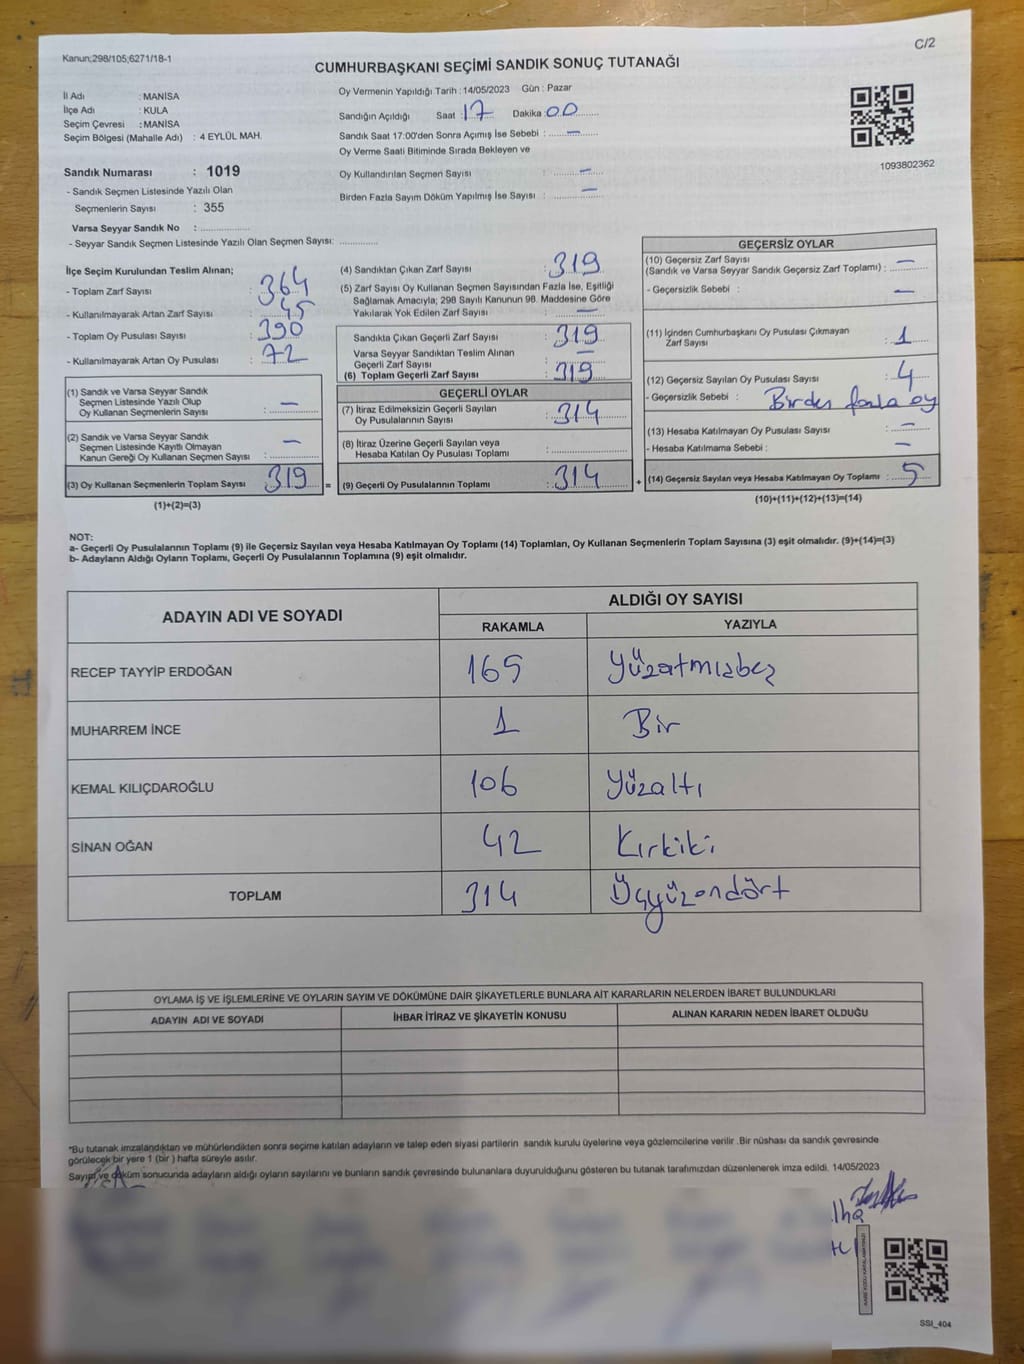 Kanun;298/105;6271/18-1
C/2
CUMHURBAŞKANI SEÇİMİ SANDIK SONUÇ TUTANAĞI
İl Adı : MANİSA
İlçe Adı : KULA
Seçim Çevresi : MANİSA
Seçim Bölgesi (Mahalle Adı) : 4 EYLÜL MAH.
Oy Vermenin Yapıldığı Tarih : 14/05/2023 Gün : Pazar
Sandığın Açıldığı Saat : 17 Dakika : 00
Sandık Saat 17:00'den Sonra Açımış İse Sebebi : —
Oy Verme Saati Bitiminde Sırada Bekleyen ve
Oy Kullandırılan Seçmen Sayısı : —
Birden Fazla Sayım Döküm Yapılmış İse Sayısı : —
1093802362
Sandık Numarası : 1019
- Sandık Seçmen Listesinde Yazılı Olan
Seçmenlerin Sayısı : 355
Varsa Seyyar Sandık No :
- Seyyar Sandık Seçmen Listesinde Yazılı Olan Seçmen Sayısı:
İlçe Seçim Kurulundan Teslim Alınan;
- Toplam Zarf Sayısı : 364
- Kullanılmayarak Artan Zarf Sayısı : 45
- Toplam Oy Pusulası Sayısı : 390
- Kullanılmayarak Artan Oy Pusulası : 72
(1) Sandık ve Varsa Seyyar Sandık
Seçmen Listesinde Yazılı Olup
Oy Kullanan Seçmenlerin Sayısı : —
(2) Sandık ve Varsa Seyyar Sandık
Seçmen Listesinde Kayıtlı Olmayan
Kanun Gereği Oy Kullanan Seçmen Sayısı : —
(3) Oy Kullanan Seçmenlerin Toplam Sayısı : 319
(1)+(2)=(3)
(4) Sandıktan Çıkan Zarf Sayısı : 319
(5) Zarf Sayısı Oy Kullanan Seçmen Sayısından Fazla İse, Eşitliği
Sağlamak Amacıyla; 298 Sayılı Kanunun 98. Maddesine Göre
Yakılarak Yok Edilen Zarf Sayısı : —
Sandıkta Çıkan Geçerli Zarf Sayısı : 319
Varsa Seyyar Sandıktan Teslim Alınan
Geçerli Zarf Sayısı : —
(6) Toplam Geçerli Zarf Sayısı : 319
GEÇERLİ OYLAR
(7) İtiraz Edilmeksizin Geçerli Sayılan
Oy Pusulalarının Sayısı : 314
(8) İtiraz Üzerine Geçerli Sayılan veya
Hesaba Katılan Oy Pusulası Toplamı :
= (9) Geçerli Oy Pusulalarının Toplamı : 314
GEÇERSİZ OYLAR
(10) Geçersiz Zarf Sayısı
(Sandık ve Varsa Seyyar Sandık Geçersiz Zarf Toplamı) : —
- Geçersizlik Sebebi : —
(11) İçinden Cumhurbaşkanı Oy Pusulası Çıkmayan
Zarf Sayısı : 1
(12) Geçersiz Sayılan Oy Pusulası Sayısı : 4
- Geçersizlik Sebebi : Birden fazla oy
(13) Hesaba Katılmayan Oy Pusulası Sayısı : —
- Hesaba Katılmama Sebebi : —
+ (14) Geçersiz Sayılan veya Hesaba Katılmayan Oy Toplamı : 5
(10)+(11)+(12)+(13)=(14)
NOT:
a- Geçerli Oy Pusulalarının Toplamı (9) ile Geçersiz Sayılan veya Hesaba Katılmayan Oy Toplamı (14) Toplamları, Oy Kullanan Seçmenlerin Toplam Sayısına (3) eşit olmalıdır. (9)+(14)=(3)
b- Adayların Aldığı Oyların Toplamı, Geçerli Oy Pusulalarının Toplamına (9) eşit olmalıdır.
ADAYIN ADI VE SOYADI
ALDIĞI OY SAYISI
RAKAMLA YAZIYLA
RECEP TAYYİP ERDOĞAN 165 Yüzatmışbeş
MUHARREM İNCE 1 Bir
KEMAL KILIÇDAROĞLU 106 Yüzaltı
SİNAN OĞAN 42 Kırkiki
TOPLAM 314 Üçyüzondört
OYLAMA İŞ VE İŞLEMLERİNE VE OYLARIN SAYIM VE DÖKÜMÜNE DAİR ŞİKAYETLERLE BUNLARA AİT KARARLARIN NELERDEN İBARET BULUNDUKLARI
ADAYIN ADI VE SOYADI İHBAR İTİRAZ VE ŞİKAYETİN KONUSU ALINAN KARARIN NEDEN İBARET OLDUĞU
*Bu tutanak imzalandıktan ve mühürlendikten sonra seçime katılan adayların ve talep eden siyasi partilerin sandık kurulu üyelerine veya gözlemcilerine verilir .Bir nüshası da sandık çevresinde
görülecek bir yere 1 (bir ) hafta süreyle asılır.
Sayım ve döküm sonucunda adayların aldığı oyların sayılarını ve bunların sandık çevresinde bulunanlara duyurulduğunu gösteren bu tutanak tarafımızdan düzenlenerek imza edildi. 14/05/2023
SSI_404